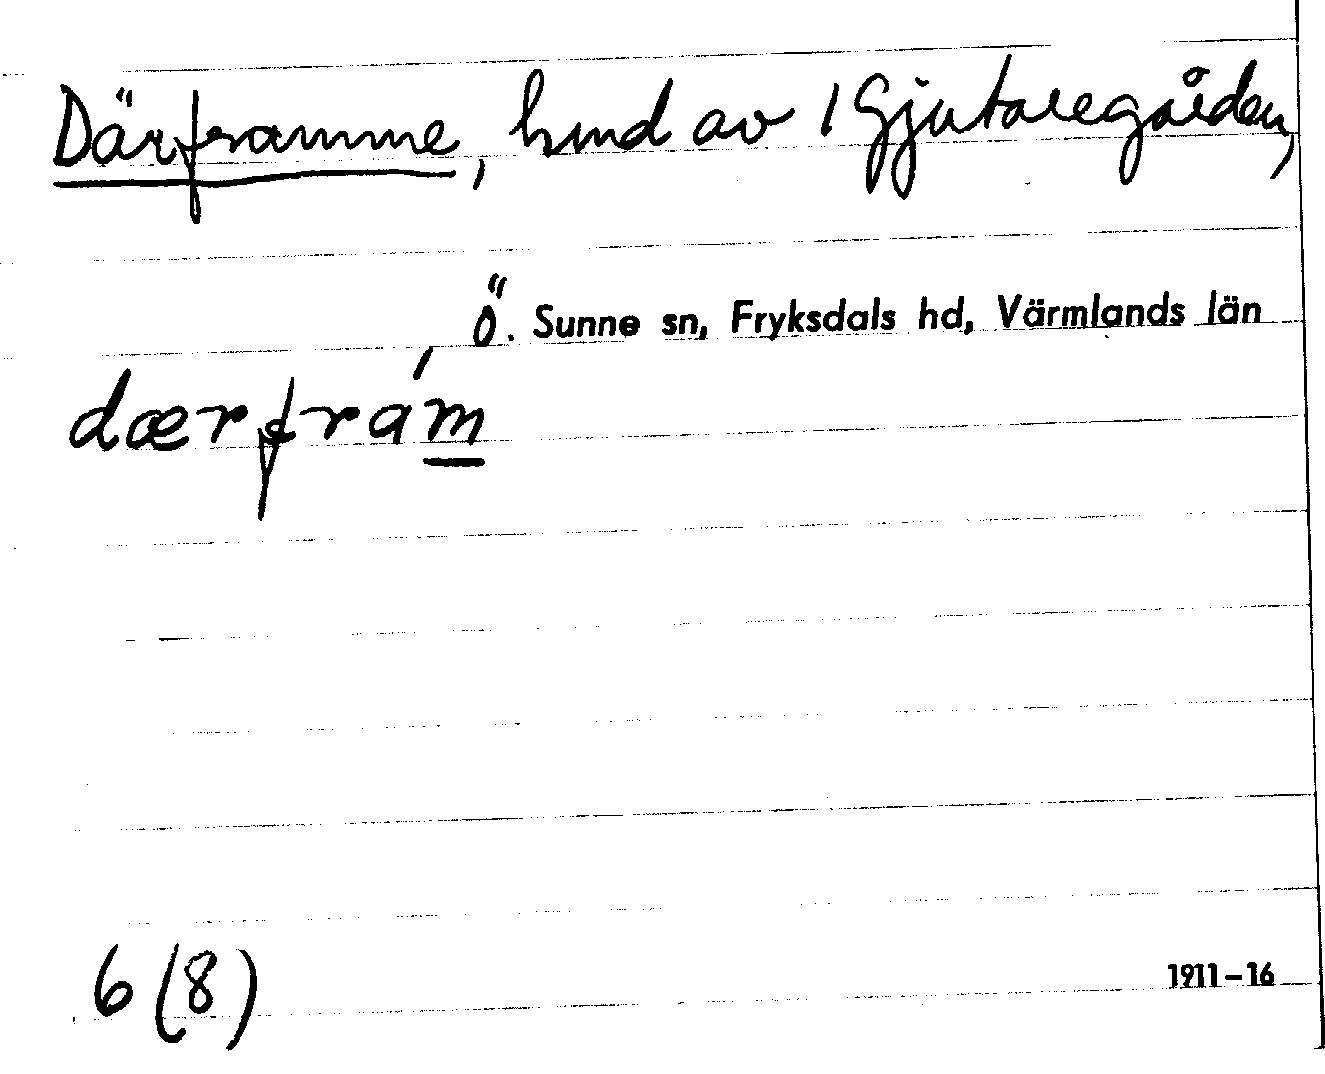 Därframme, hmd av 1 Gjutaregården,
Ö. Sunne sn, Fryksdals hd, Värmlands län
dærfram
6 (8)
1911-16